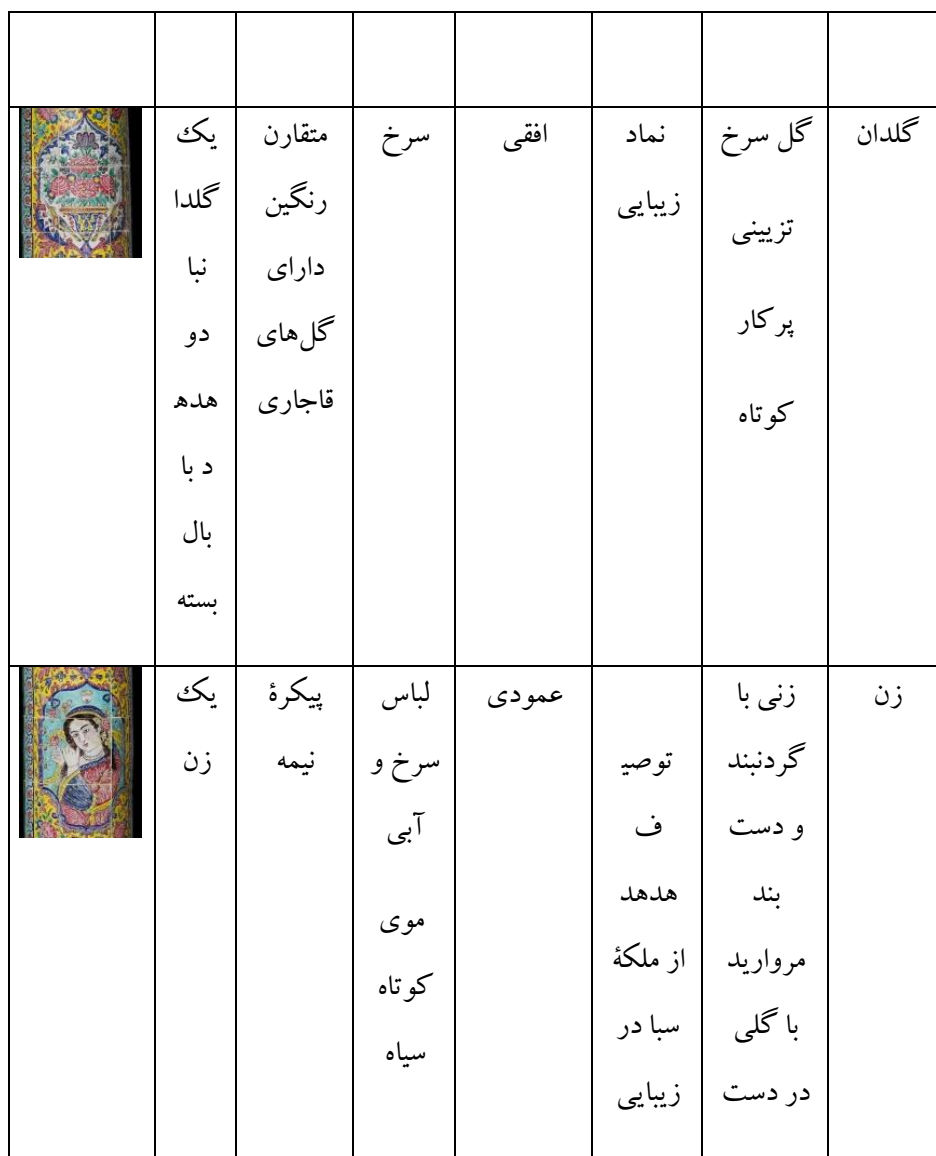 گلدان
گل سرخ
تزیینی
پرکار
کوتاه
نماد
زیبایی
افقی
سرخ
متقارن
رنگین
دارای
گل‌های
قاجاری
یک
گلدا
نبا
دو
هده
د با
بال
بسته
زن
زنی با
گردنبند
و دست
بند
مروارید
با گلی
در دست
توصی
ف
هدهد
از ملکۀ
سبا در
زیبایی
عمودی
لباس
سرخ و
آبی
موی
کوتاه
سیاه
پیکرۀ
نیمه
یک
زن